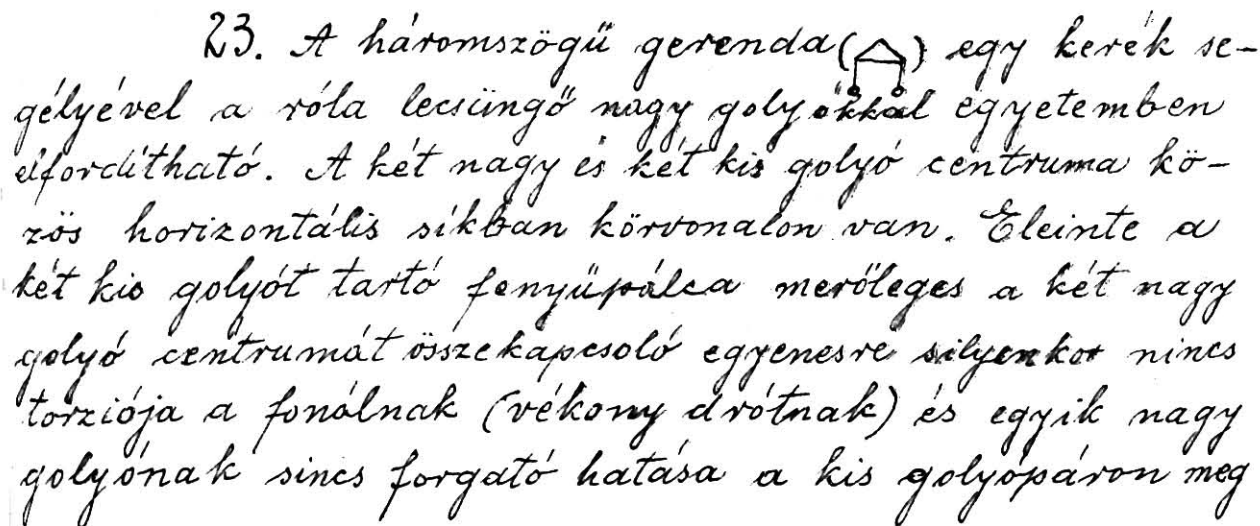 23. A háromszögű gerenda ( ) egy kerék se-
gélyével a róla lecsüngő nagy golyókkal egyetemben
elfordítható. A két nagy és két kis golyó centruma kö-
zös horizontális síkban körvonalon van. Eleinte a
két kis golyót tartó fenyüpálca merőleges a két nagy
golyó centrumát összekapcsoló egyenesre s ilyenkor nincs
torziója a fonálnak (vékony drótnak) és egyik nagy
golyónak sincs forgató hatása a kis golyópáron meg